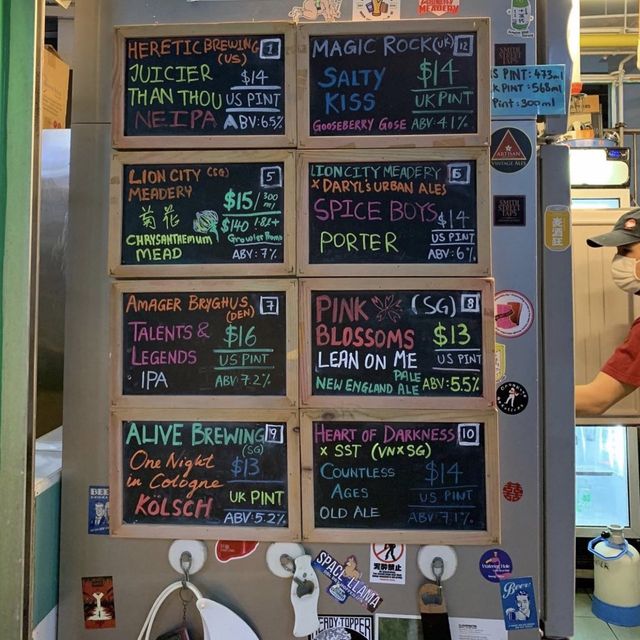 HERETIC BREWING 1
(US)
JUICIER
THAN THOU
NEIPA
$14
US PINT
ABV: 6.5%
MAGIC ROCK (UK) 12
SALTY
KISS
$14
UK PINT
GOOSEBERRY GOSE ABV: 4.1%
LION CITY (SG) 5
MEADERY
菊花
CHRYSANTHEMUM
MEAD
$15/300
ml
$140
ABV: 7%
LION CITY MEADERY 6
X DARYL'S URBAN ALES
SPICE BOYS
PORTER
$14
US PINT
ABV: 6%
AMAGER BRYGHUS 7
(DEN)
TALENTS &
LEGENDS
IPA
$16
US PINT
ABV: 7.2%
PINK (SG) 8
BLOSSOMS
$13
LEAN ON ME
US PINT
PALE
NEW ENGLAND ALE
ABV: 5.5%
ALIVE BREWING 9
(SG)
One Night
in Cologne
KÖLSCH
$13
UK PINT
ABV: 5.2%
HEART OF DARKNESS 10
X SST (VN X SG)
COUNTLESS
AGES
OLD ALE
$14
US PINT
ABV: 7.1%
S PINT: 473ml
K PINT: 568ml
Pint: 300ml
ARTISAN
VINTAGE ALES
SMITH
STREET
TAPS
麦酒狂
MEADERY
SPACE LLAMA
HEADY TOPPER
Beer